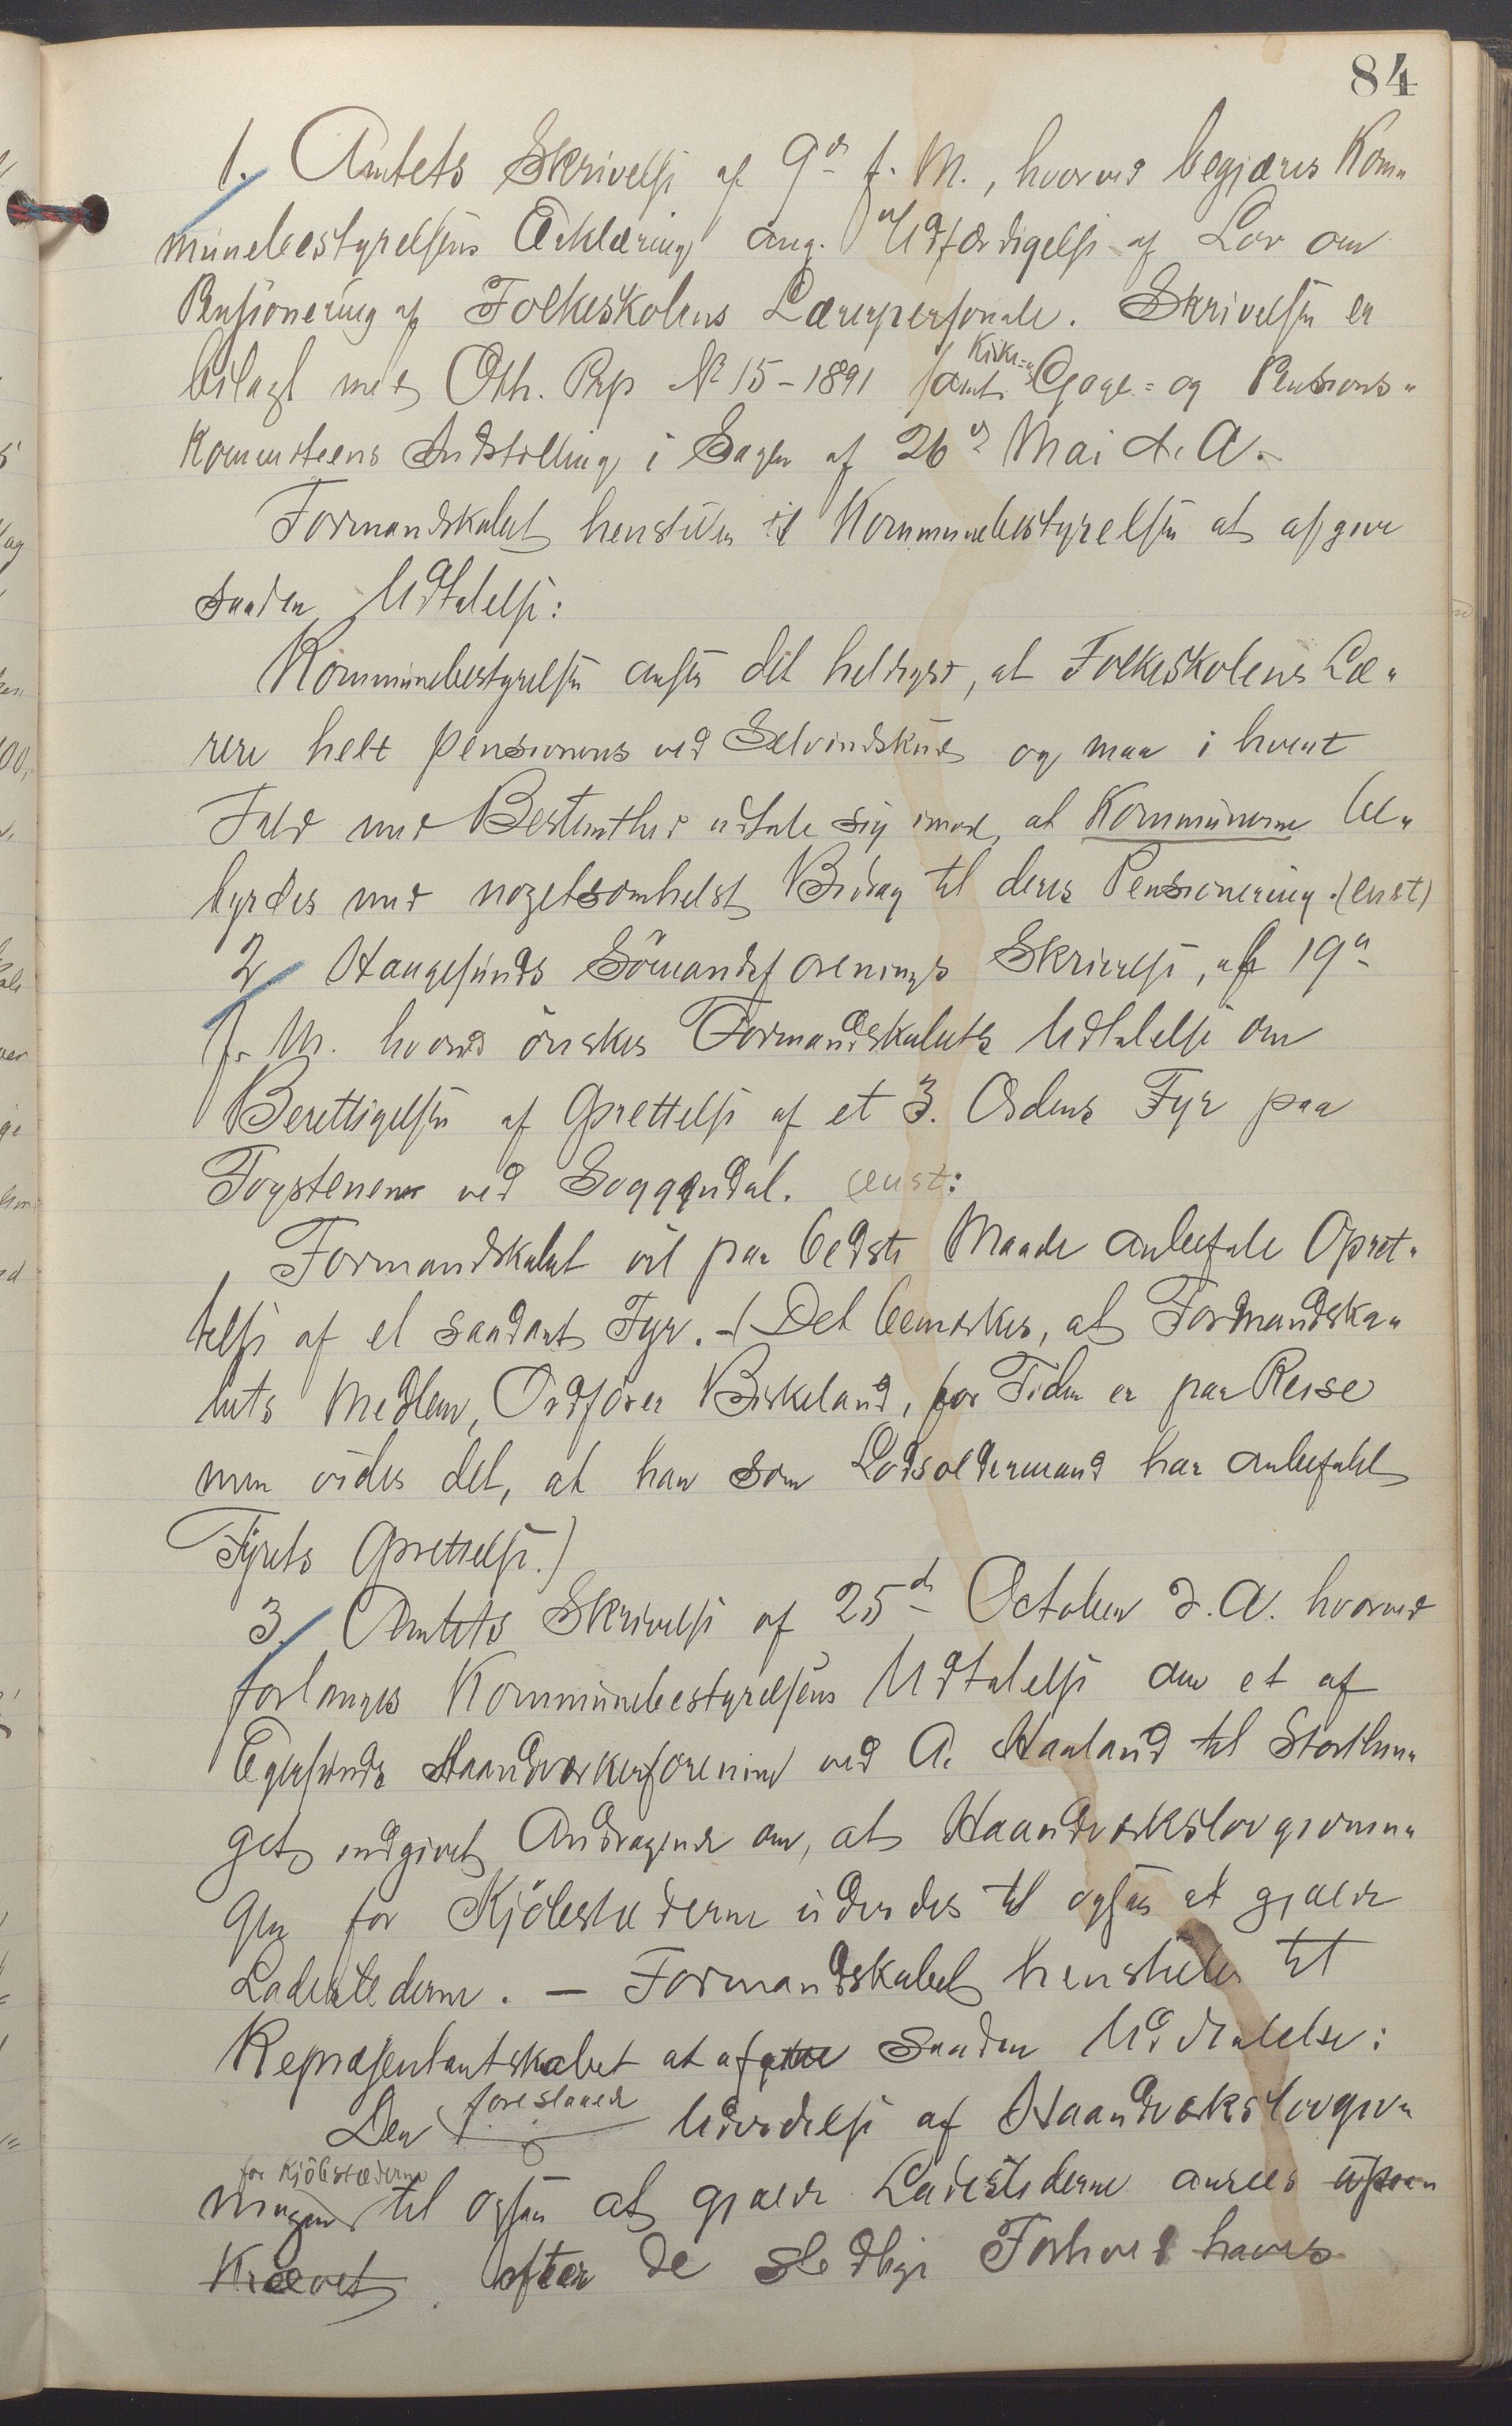 84
1. Amtets Skrivelse af 9de f. M., hvorved begjæres Kom-
munebestyrelsens Erklæring ang. Udfærdigelse af Lov om
Pensionering af Folkeskolens Lærerpersonale. Skrivelsen er
bilagt med Oth. Prp No 15 - 1891 samt Kirke- Gage- og Pensions-
Komiteens Indstilling i Sagen af 26de Mai d. A.
Formandskabet henstiller til Kommunebestyrelsen at afgive
saadan Udtalelse:
Kommunebestyrelsen anser det heldigst, at Folkeskolens Læ-
rere helt pensioneres ved Selvindskud og maa i hvert
Fald med Bestemthed udtale sig imod, at Kommunerne be-
byrdes med nogetsomhelst Bidrag til deres Pensionering. (enst)
2 Haugesunds Sömandsforenings Skrivelse, af 19de
f. M. hvorved önskes Formandskabets Udtalelse om
Berettigelsen af Oprettelse af et 3. Ordens Fyr paa
Fogstenene ved Soggendal. (enst:
Formandskabet vil paa bedste Maade anbefale Opret-
telse af et saadant Fyr. - (Det bemerkes, at Formandska-
bets Medlem, Ordförer Birkeland, for Tiden er paa Reise
men vides det, at han som Lodsoldermand har anbefalet
Fyrets Oprettelse.)
3. Amtets Skrivelse af 25de October d. A. hvorved
forlanges Kommunebestyrelsens Udtalelse om et af
Egersunds Haandværkerforening ved A. Haaland til Storthin-
get indgivet Andragende om, at Haandværkslovgivnin-
gen for Kjöbstæderne udvides til ogsaa at gjælde
Ladestederne. - Formandskabet henstiller til
Repræsentantskabet at afgive saadan Udtalelse:
Den foreslaaede Udvidelse af Haandværkslovgiv-
ningen for Kjöbstæderne til ogsaa at gjælde Ladestederne ansees
Krævet efter de stedlige Forhold haves